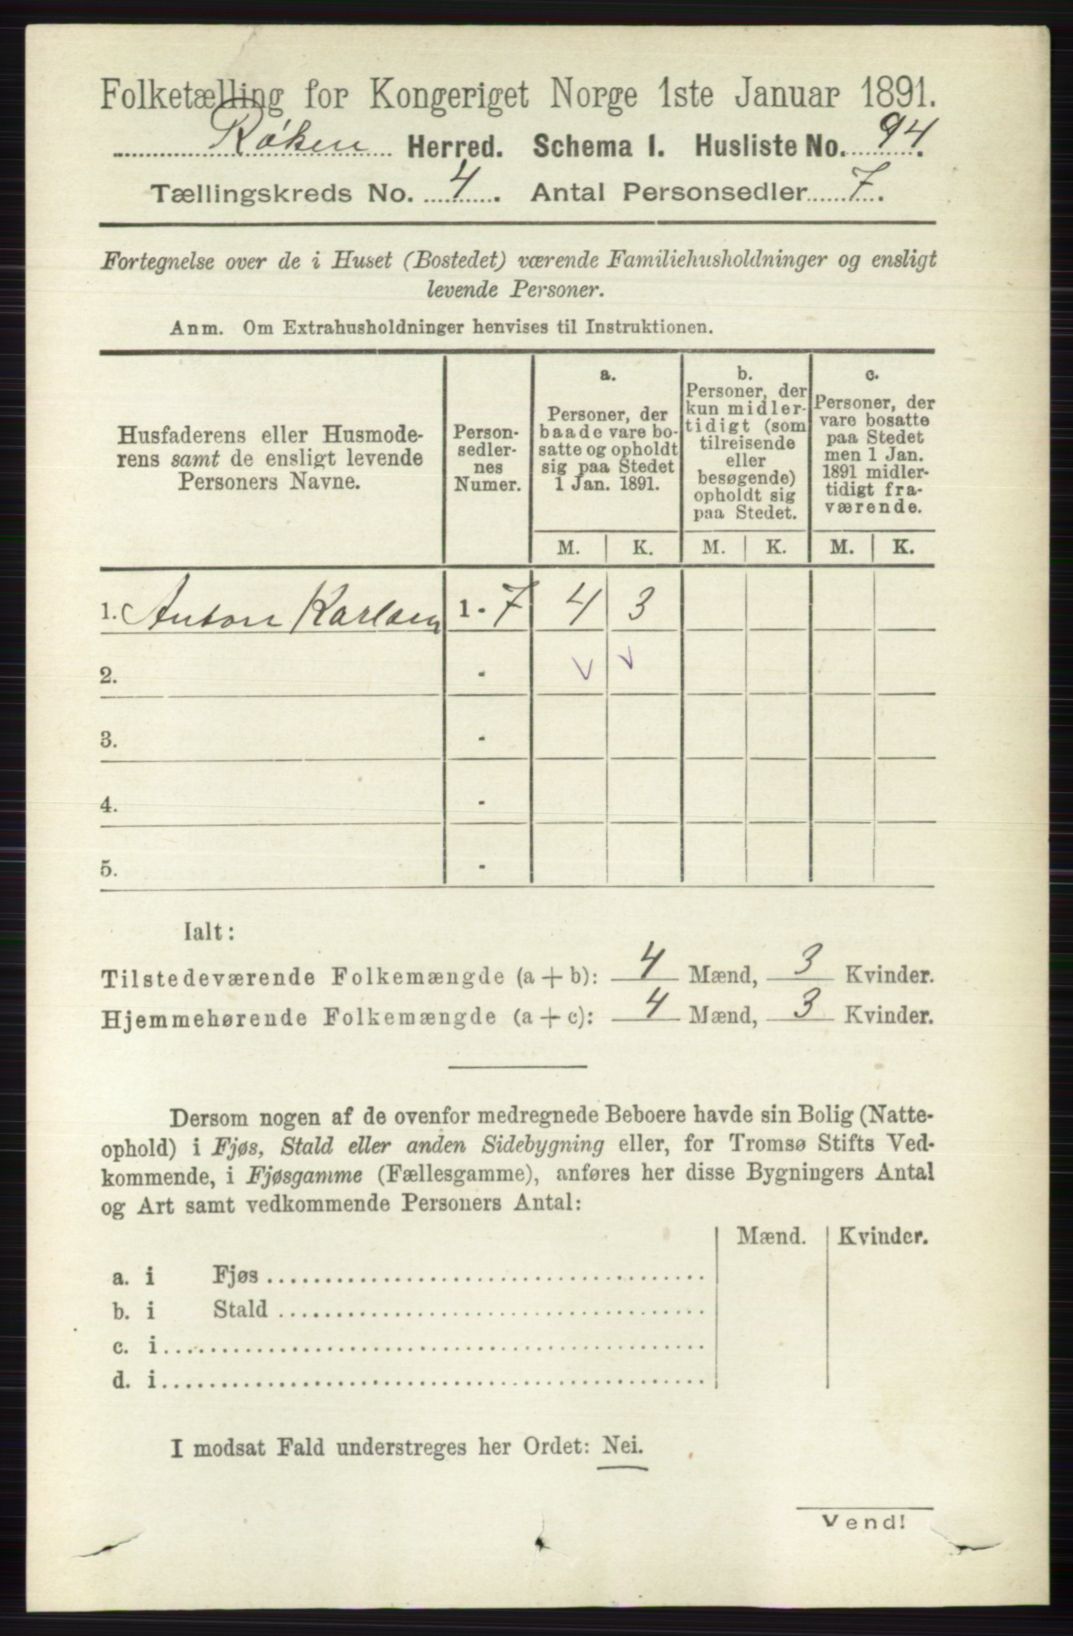 Folketælling for Kongeriget Norge 1ste Januar 1891.
Røken Herred. Schema I. Husliste No. 94.
Tællingskreds No. 4. Antal Personsedler 7.
Fortegnelse over de i Huset (Bostedet) værende Familiehusholdninger og ensligt
levende Personer.
Anm. Om Extrahusholdninger henvises til Instruktionen.
Husfaderens eller Husmode-
rens samt de ensligt levende
Personers Navne.
Person-
sedler-
nes
Numer.
a.
Personer, der
baade vare bo-
satte og opholdt
sig paa Stedet
1 Jan. 1891.
b.
Personer, der
kun midler-
tidigt (som
tilreisende
eller
besøgende)
opholdt sig
paa Stedet.
c.
Personer, der
vare bosatte
paa Stedet
men 1 Jan.
1891 midler-
tidigt fra-
værende.
M. K. M. K. M. K.
1. Anton Karlsen 1 - 7 4 3
2. -
3. -
4. -
5. -
Ialt:
Tilstedeværende Folkemængde (a + b): 4 Mænd, 3 Kvinder.
Hjemmehørende Folkemængde (a + c): 4 Mænd, 3 Kvinder.
Dersom nogen af de ovenfor medregnede Beboere havde sin Bolig (Natte-
ophold) i Fjøs, Stald eller anden Sidebygning eller, for Tromsø Stifts Ved-
kommende, i Fjøsgamme (Fællesgamme), anføres her disse Bygningers Antal
og Art samt vedkommende Personers Antal:
Mænd. Kvinder.
a. i Fjøs
b. i Stald
c. i
d. i
I modsat Fald understreges her Ordet: Nei.
Vend!